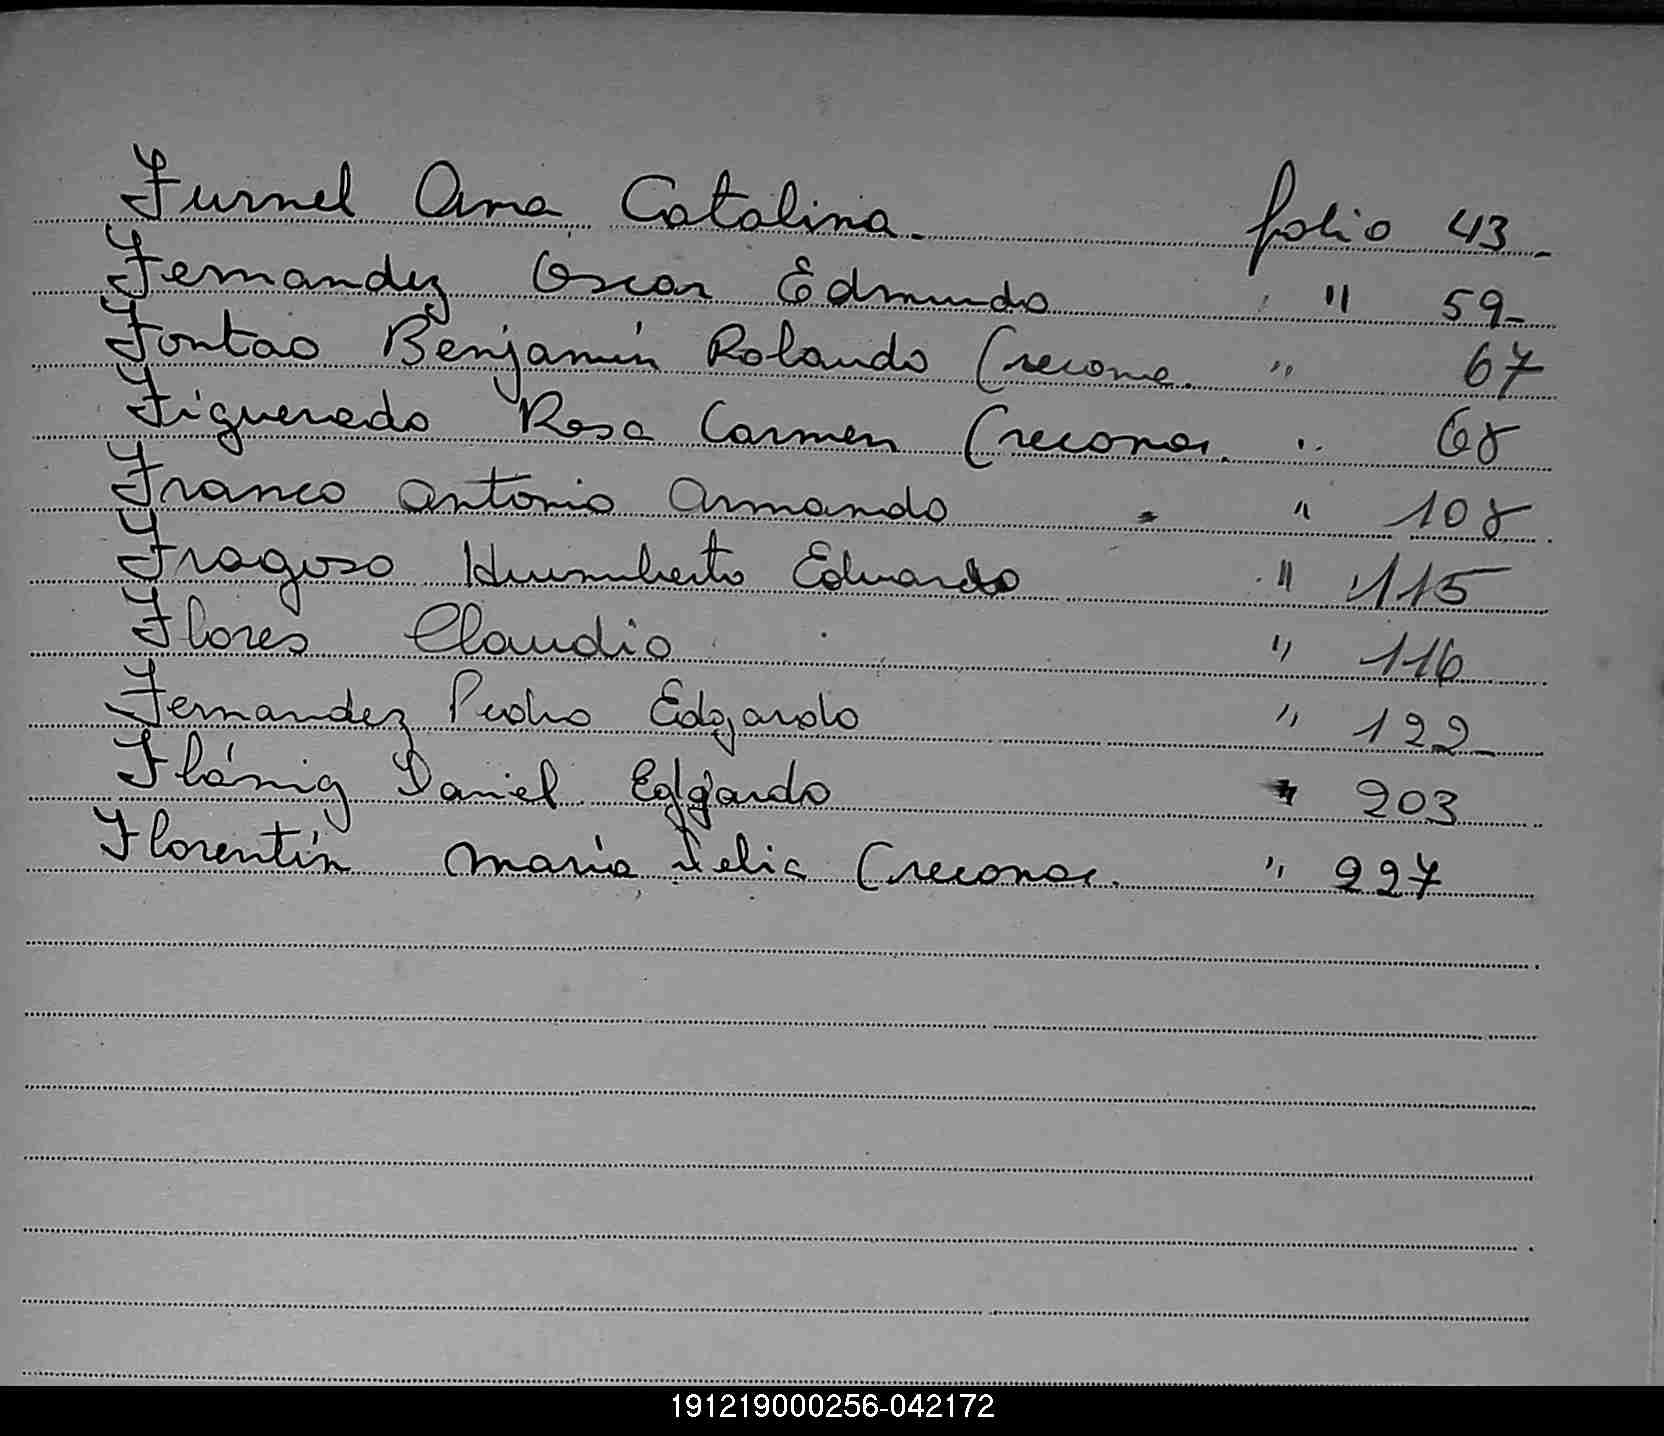 Furnel Ana Catalina. folio 43-
Fernandez Oscar Edmundo " 59-
Fontao Benjamín Rolando (recono. " 67
Figueredo Rosa Carmen (reconoc. " 68
Franco Antonio Armando " 108
Fragoso Humberto Eduardo " 115
Flores Claudio " 116
Fernandez Pedro Edgardo " 122-
Flánig Daniel Edgardo " 203
Florentín María Delia (reconoc. " 227
191219000256-042172